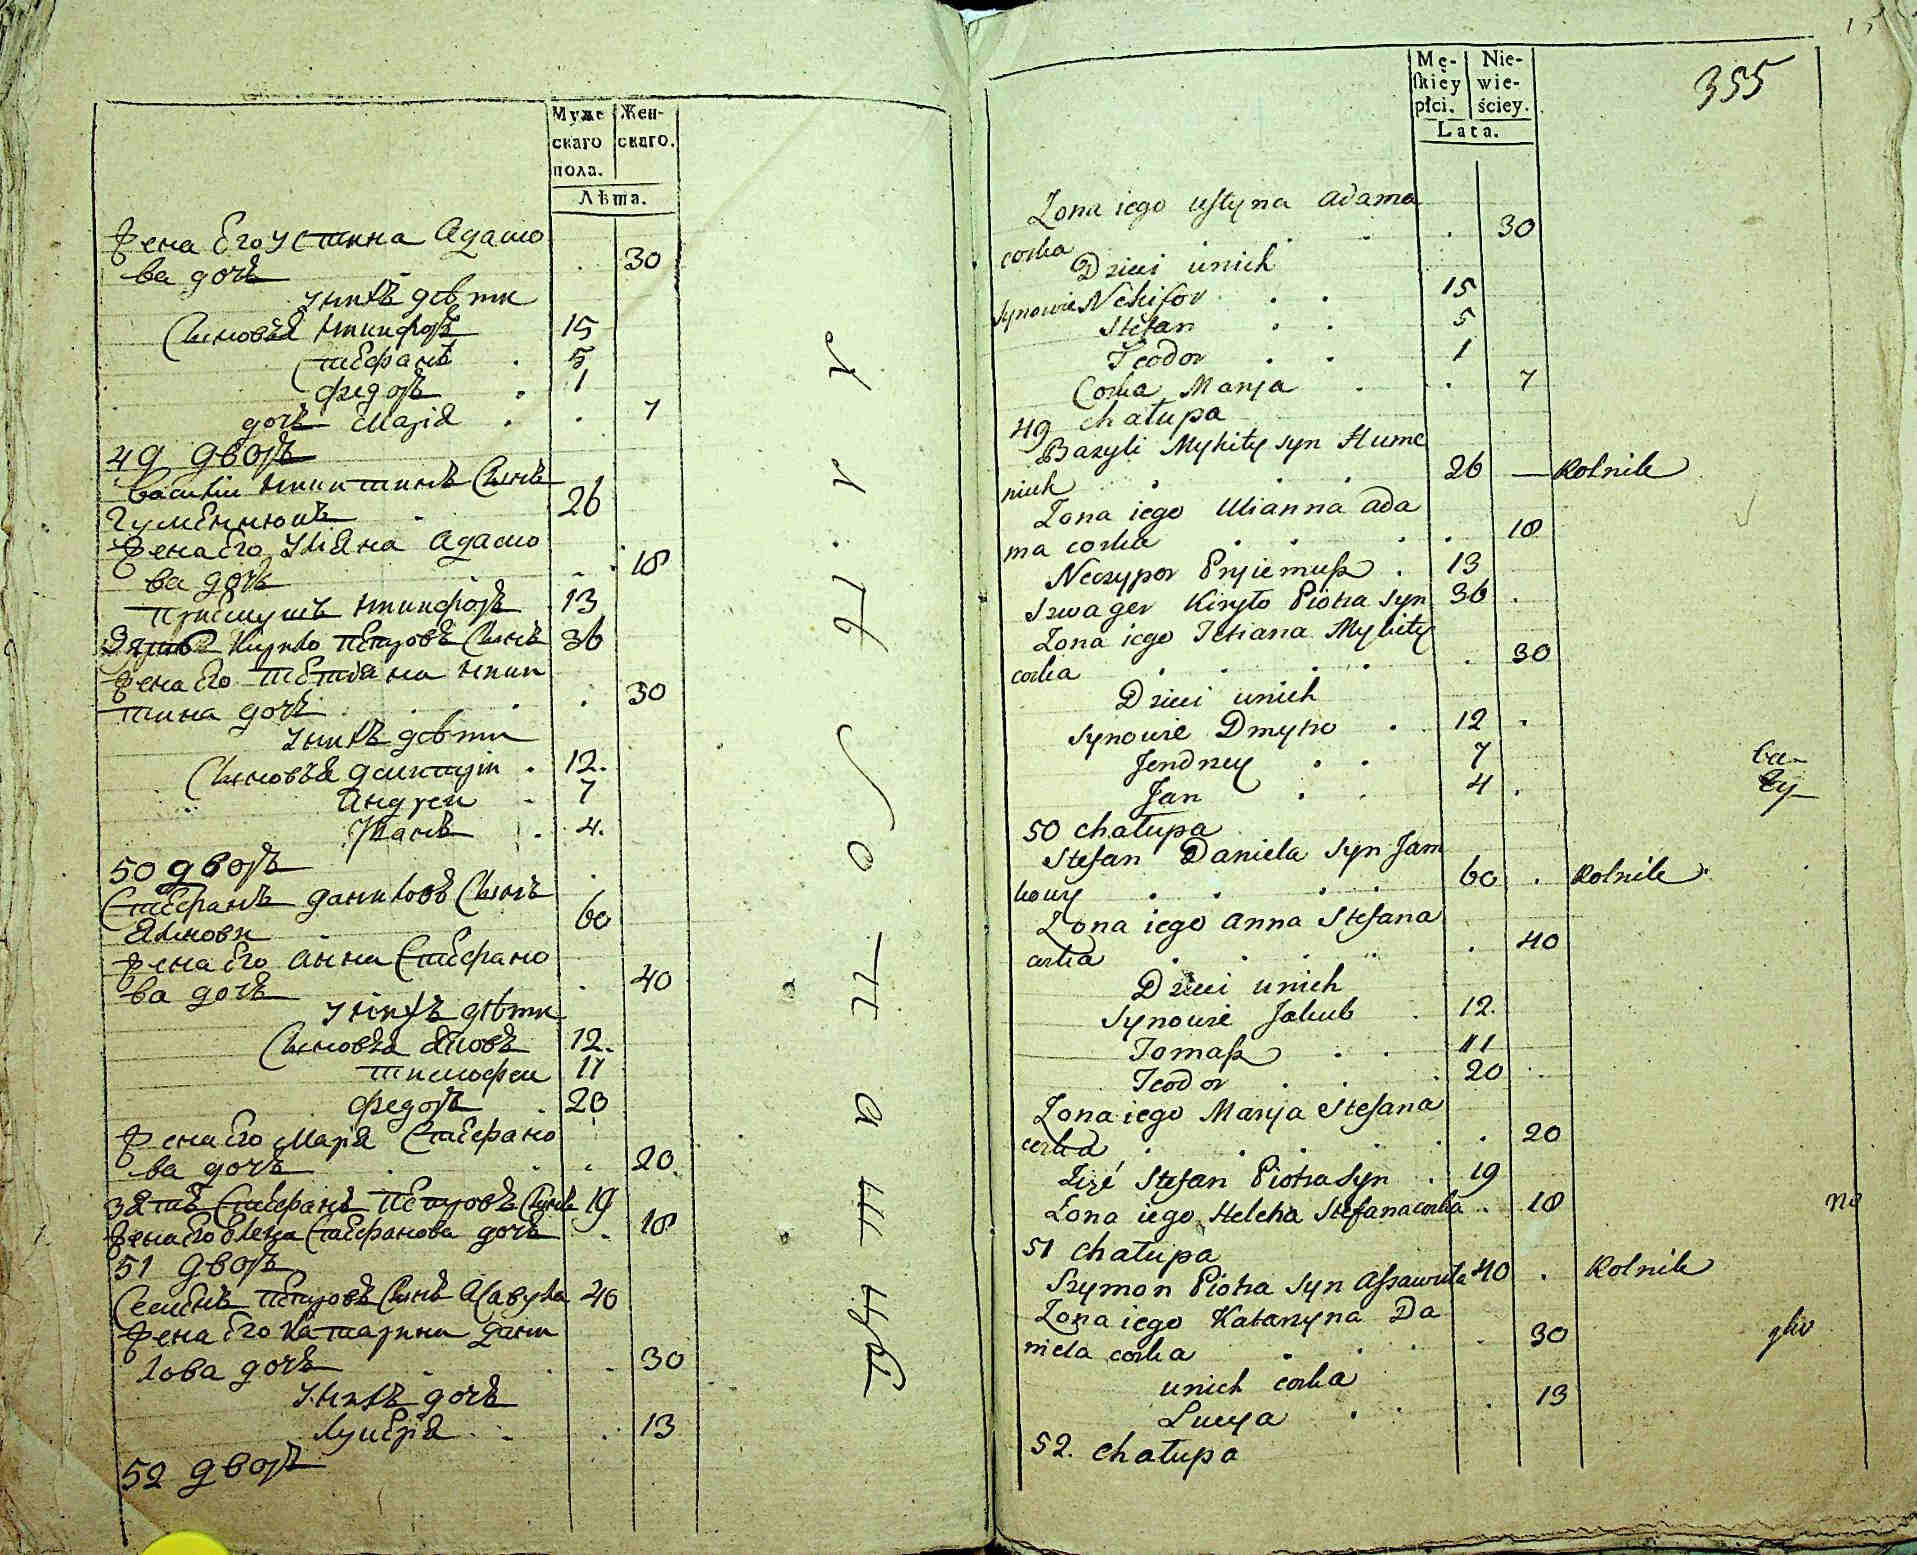 Муже
скаго
пола.
Жен-
скаго.
Лѣта.
Жена Его Устина Адамо
ва дочь 30
У нихъ дѣти
Сыновья Никифоръ 15
Стефанъ 5
Федоръ 1
дочь Марія 7
49 дворъ
Василiи Никитинъ Сынъ
Гуменнюкъ 26
Жена Его Уляна Адамо
ва дочь 18
Приемушъ Никифоръ 13
Зять Кирило Петровъ Сынъ 36
Жена Его Тетяна Ники
тина дочь 30
У нихъ дѣти
Сыновья Дмитрiи 12.
Андреи 7
Иванъ 4.
50 дворъ
Стефанъ Даниловъ Сынъ
60
Жена Его Анна Стефано
ва дочь 40
У нихъ дѣти
Сыновья Яковъ 12.
Тимофеи 11
Федоръ 20
Жена Его Марія Стефано
ва дочь 20.
Зять Стефанъ Петровъ Сынъ 19
Жена Его Елена Стефанова дочь 18
51 дворъ
Семенъ Петровъ Сынъ Асавула 40
Жена Его Катарина Дани
лова дочь 30
У нихъ дочь
Лукерія 13
52 дворъ
Mę-
ſkiey
płci.
Nie-
wie-
ściey.
Lata.
355
15
Zona iego Uſtyna Adama
corka 30
Dzieci unich
Synowie Nehifor 15
Stefan 5
Teodor 1
Corka Marya 7
49 chałupa
Bazyli Mykity Syn Hume
niuk 26 — Rolnik
Zona iego Ulianna Ada
ma corka 18
Neczypor Pryiemuſz 13
Szwager Kiryło Piotra Syn 36
Zona iego Tetiana Mykity
corka 30
Dzieci unich
Synowie Dmytro 12
Jendrzey 7
Jan 4
50 chałupa
Stefan Daniela Syn Jam
kowy 60 Rolnik
Zona iego Anna Stefana
corka 40
Dzieci unich
Synowie Jakub 12.
Tomaſz 11
Teodor 20
Zona iego Marya Stefana
corka 20
Zięć Stefan Piotra Syn 19
Zona iego Helena Stefana corka 18
51 chałupa
Szymon Piotra Syn Aſsawuła 40 Rolnik
Zona iego Katarzyna Da
niela corka 30
unich corka
Lucya 13
52. chałupa